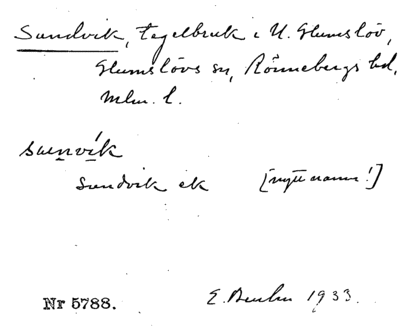 Sundvik, tegelbruk i N. Glumslöv,
Glumslövs sn, Rönnebergs hd,
Mlm. l.
saenvík
Sundvik ek [nytt namn!]
Nr 5788. E. 1933.